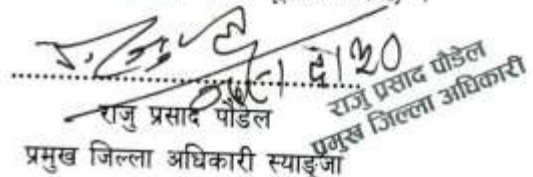 राजु प्रसाद पौडेल
प्रमुख जिल्ला अधिकारी स्याङ्जा
राजु प्रसाद पौडेल
प्रमुख जिल्ला अधिकारी